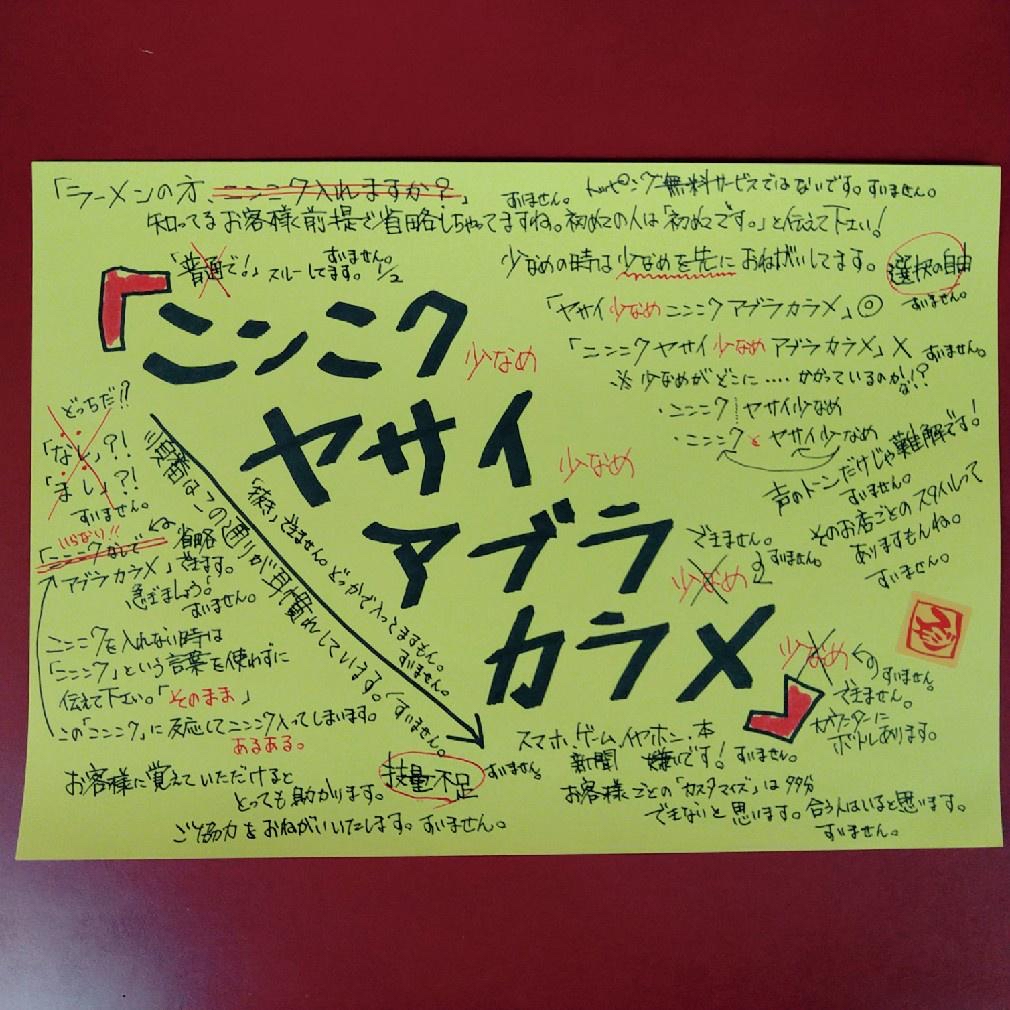 「ラーメンの方、ニンニク入れますか？」
すいません。
トッピング無料サービスではないです。すいません。
知ってるお客様前提で省略しちゃってますね。初めての人は「初めてです。」と伝えて下さい！
「普通で！」スルーしてます。1/2
すいません。
少なめの時は少なめを先におねがいしてます。
選択の自由
すいません。
「ヤサイ少なめニンニクアブラカラメ」◎
「ニンニクヤサイ少なめアブラカラメ」X
すいません。
※少なめがどこに‥‥かかっているのかな!?
・ニンニク ヤサイ少なめ
・ニンニクとヤサイ少なめ
声のトーンだけじゃ難解です！
すいません。
そのお店ごとのスタイルって
ありますもんね。
すいません。
「ニンニク
少なめ
ヤサイ
少なめ
アブラ
できません。
すいません。
少なめ
カラメ」
少なめ
すいません。
できません。
カウンターに
ボトルあります。
どっちだ!!
「なし」?!
「まし」?!
すいません。
順番はこの通りが耳慣れしています。「すいません。
「抜き」できません。どっかで入っとますもん。
すいません。
いらない!!
「ニンニクなしで
省略
アブラカラメ」できます。
急ぎましょう！
すいません。
ニンニクを入れない時は
「ニンニク」という言葉を使わずに
伝えて下さい。「そのまま」
この「ニンニク」に反応してニンニク入ってしまいます。
あるある。
お客様に覚えていただけると
とっても助かります。
技量不足
すいません。
ご協力をおねがいいたします。すいません。
スマホ、ゲーム、イヤホン、本
新聞 嫌いです！すいません。
お客様ごとの「カスタマイズ」は99%
できないと思います。合う人はいると思います。
すいません。